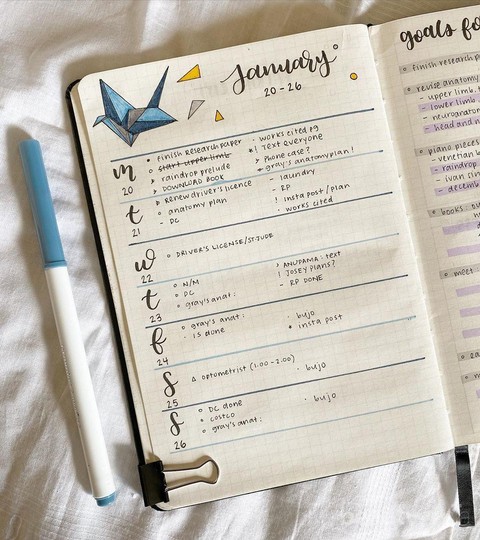 January
20-26
m
20
finish research paper
start upper limb
raindrop prelude
DOWNLOAD BOOK
works cited pg
! Text everyone
phone case?
gray's anatomy plan!
t
21
renew driver's licence
anatomy plan
DC
laundry
RP
! insta post/plan
works cited
w
22
DRIVER'S LICENSE/ST.JUDE
t
23
N/M
DC
gray's anat:
ANUPAMA: text
! JOSEY plans?
RP DONE
f
24
gray's anat:
is done
bujo
insta post
S
25
optometrist (1:00-2:00)
bujo
S
26
DC done
costco
gray's anat:
bujo
goals fo
finish research p
revise anatomy
- upper limb, t
- lower limb
- neuroanator
- head and n
piano pieces
- venetian b
- raindrop
- ivan sin
- decemb
books
meet